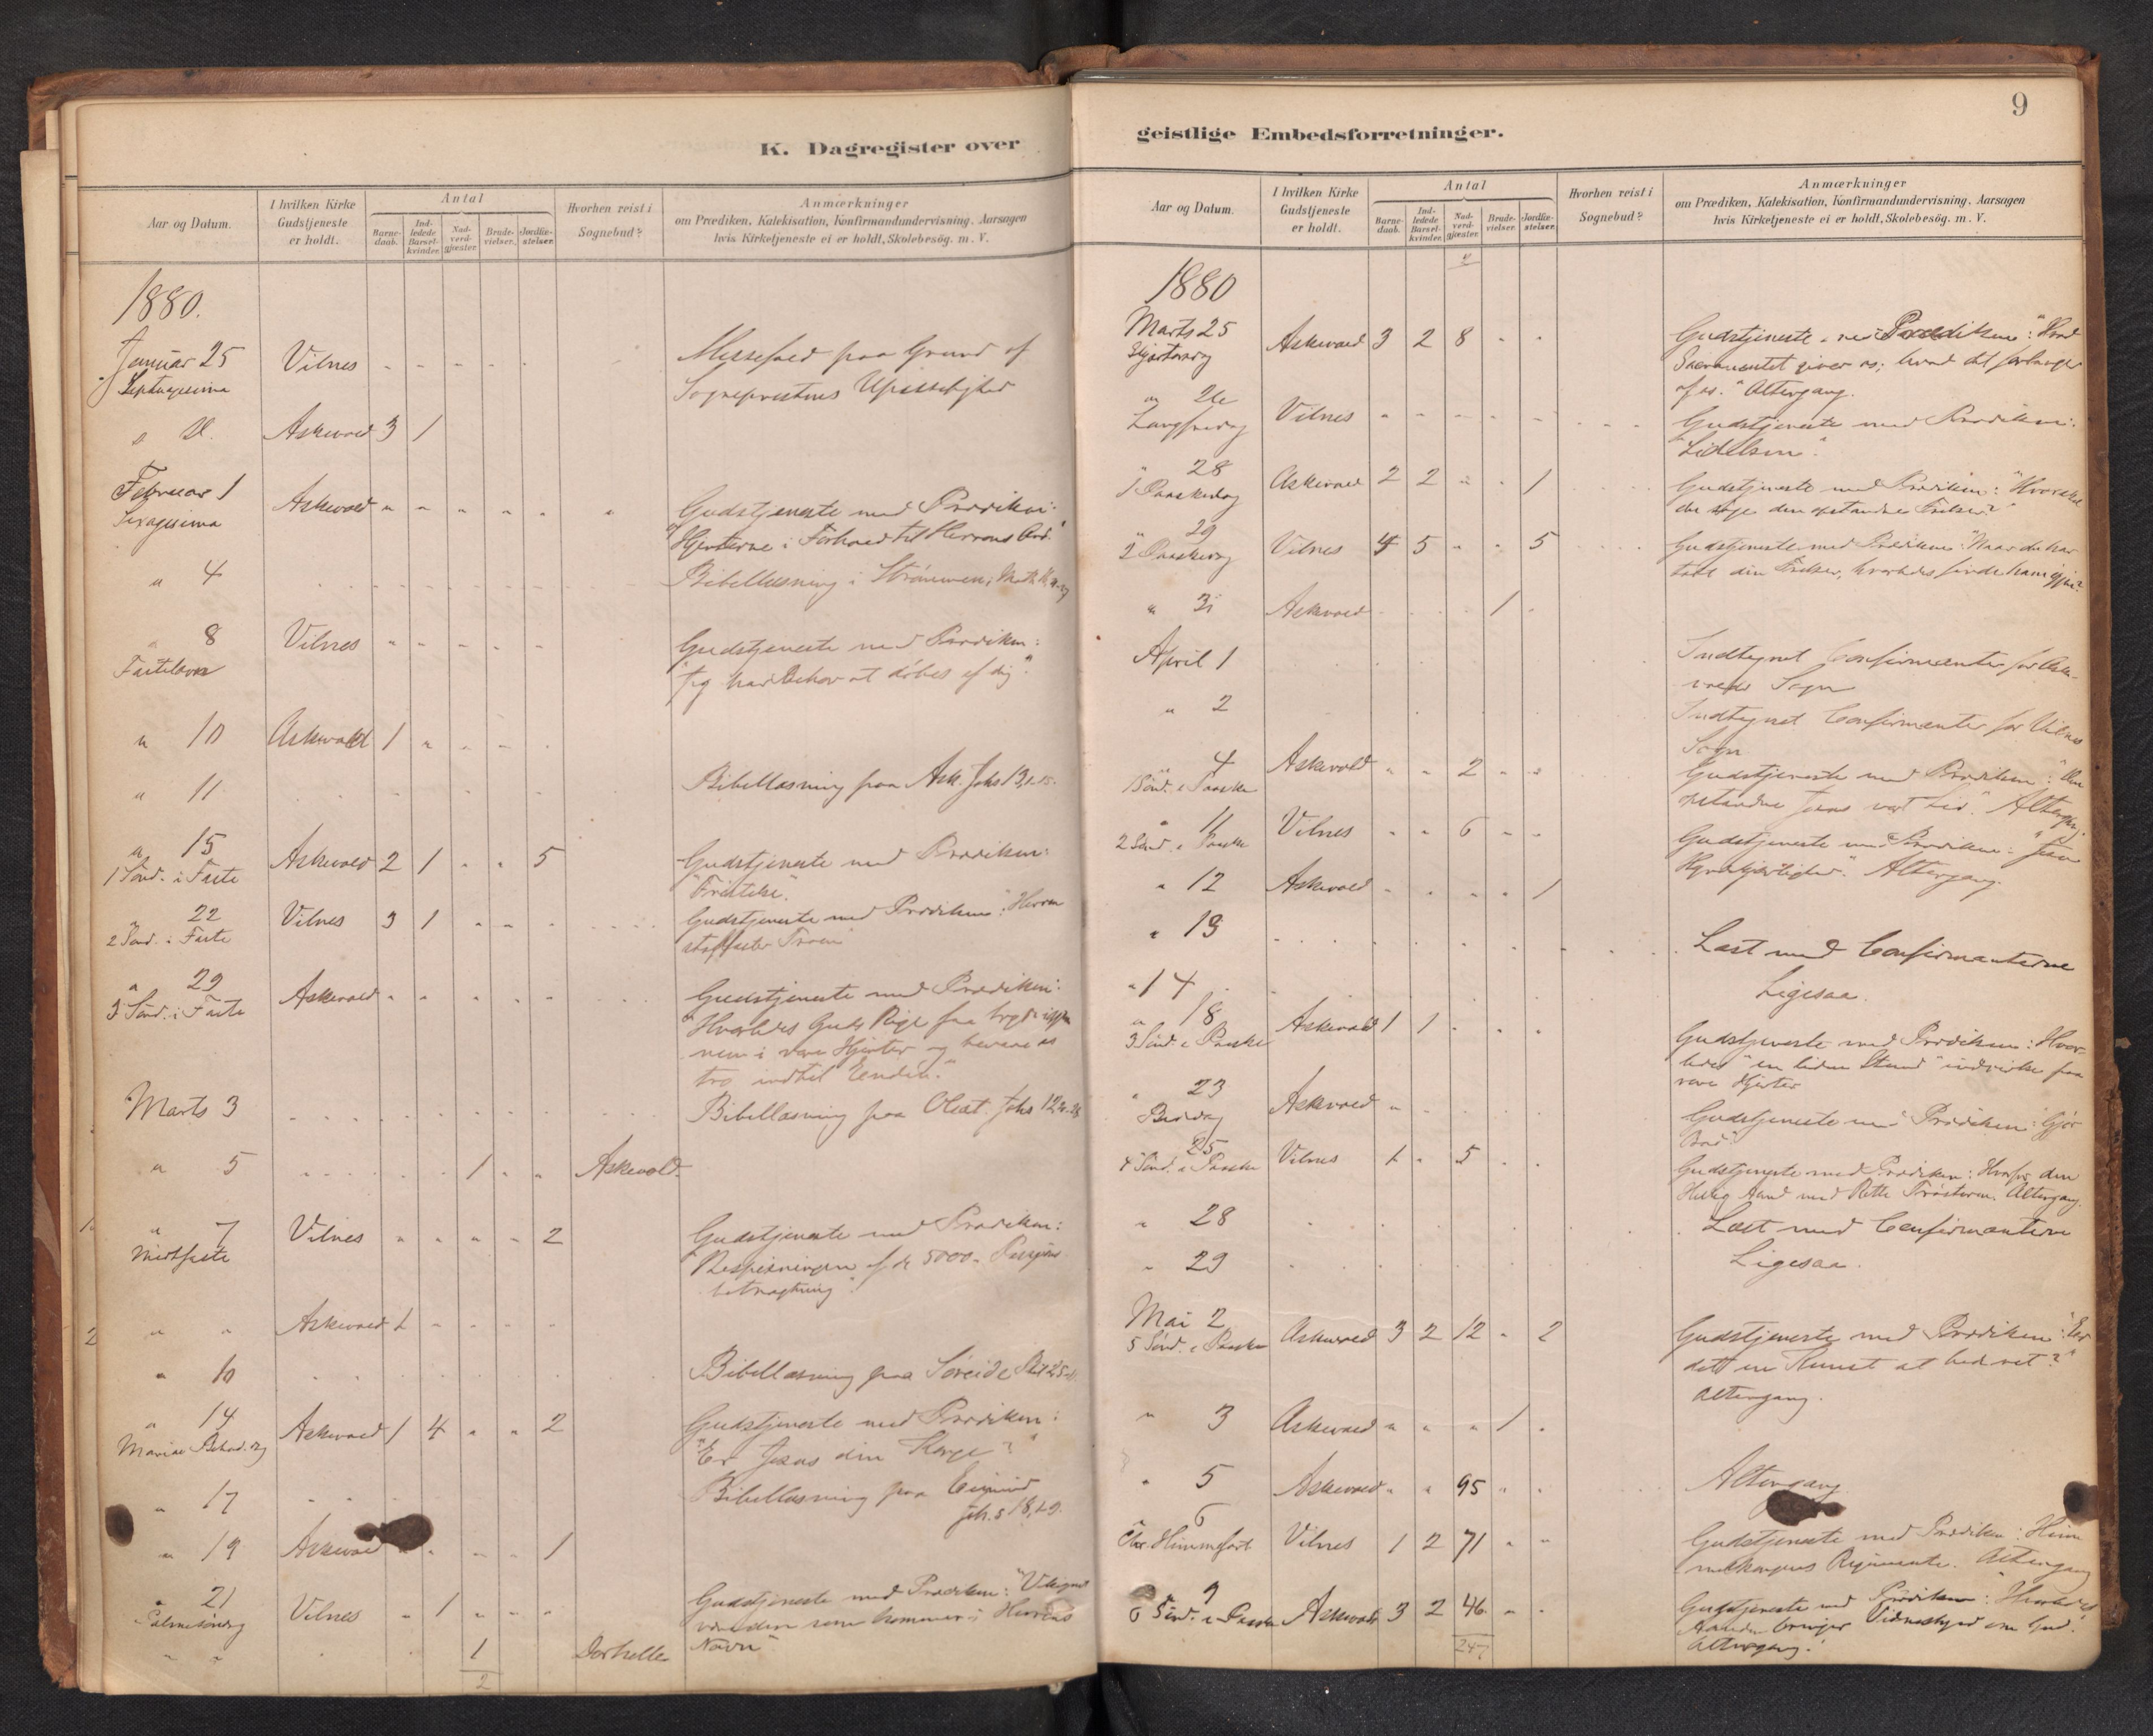 K. Dagregister over
Aar og Datum.
I hvilken Kirke Gudstjeneste er holdt.
Antal
Barne-daab.
Ind-ledede Barsel-kvinder.
Nad-verd-gjæster.
Brude-vielser.
Jordfæ-stelser.
Hvorhen reist i Sognebud?
Anmærkninger
om Prædiken, Katekisation, Konfirmandundervisning, Aarsagen
hvis Kirketjeneste ei er holdt, Skolebesög. m. V.
1880.
Januar 25 Vilnes - - - - - Messefald paa Grund af
Septuagesima Sognepræstens Upasselighed
" D. Askevold 3 1
Februar 1 Askevold " " " " " " Gudstjeneste med Prædiken:
Sexagesima "Hjerterne i Forhold til Herrens Ord."
" 4 Bibellæsning i Strømmen, Math
" 8 Vilnes " - - - - Gudstjeneste med Prædiken:
Fastelavn "Jeg har Behov at döbes af dig".
" 10 Askevold 1 " - - -
" 11 Bibellæsning paa Ask. Johs 13,1-15.
" 15 Askevold 2 1 " " 5 Gudstjeneste med Prædiken:
1 Sönd. i Faste "Fristelse".
" 22 Vilnes 3 1 " " - Gudstjeneste med Prædiken: "Herren
2 Sönd. i Faste Troen"
" 29 Askevold " " " " " Gudstjeneste med Prædiken:
3 Sönd. i Faste "Hvorledes Guds Rige faa
i vore Hjerter og bevare os
tro indtil Enden."
Marts 3 Bibellæsning paa Johs 12
" 5 1 " " Askevold.
" 7 Vilnes " " " " 2 Gudstjeneste med Prædiken:
Midtfaste "Bespisningen af de 5000.
betragtning".
" " Askevold 1 - - - -
" 10 Bibellæsning paa Söreide
" 14 Askevold 1 4 " " 2 Gudstjeneste med Prædiken:
Mariæ Bebud. dg "Er Jesus din Konge?"
" 17 Bibellæsning paa
Joh. 5
" 19 Askevold " - - - 1
" 21 Vilnes - 1 - - - Gudstjeneste med Prædiken: "Velsignet
Palmesöndag være den som kommer i Herrens
" " 1 Navn"
2
geistlige Embedsforretninger.
9
Aar og Datum.
I hvilken Kirke Gudstjeneste er holdt.
Antal
Barne-daab.
Ind-ledede Barsel-kvinder.
Nad-verd-gjæster.
Brude-vielser.
Jordfæ-stelser.
Hvorhen reist i Sognebud?
Anmærkninger
om Prædiken, Katekisation, Konfirmandundervisning, Aarsagen
hvis Kirketjeneste ei er holdt, Skolebesög. m. V.
1880
Marts 25 Askevold 3 2 8 - - Gudstjeneste med Prædiken: "Hvad
Skjærtorsdag Sacramentet giver os; hvad det forlanger
af os." Altergang.
" 26 Vilnes - - - - - Gudstjeneste med Prædiken:
Langfredag "Lidelsen".
" 28 Askevold 2 2 - - 1 Gudstjeneste med Prædiken: "Hvor skal
1 Paaskedag du söge den opstandne Frelser?"
" 29 Vilnes 4 5 - - 5 Gudstjeneste med Prædiken: "Naar du har
2 Paaskedag tabt din Frelser, hvorledes finde ham igjen?"
" 31 Askevold - - - 1 -
April 1 Indtegnet Confirmanter for Aske-
volds Sogn
" 2 Indtegnet Confirmanter for Vilnes
Sogn
" 4 Askevold " " 2 - - Gudstjeneste med Prædiken: "Den
1 Sönd. e. Paaske opstandne Jesus vort Liv." Altergang.
" 11 Vilnes " " 6 - - Gudstjeneste med Prædiken: "Jesu
2 Sönd. e. Paaske Altergang.
" 12 Askevold - - - - 1
" 13 Læst med Confirmanterne
" 14 Ligesaa.
" 18 Askevold 1 1 - - - Gudstjeneste med Prædiken: Hvor-
3 Sönd. e. Paaske ledes "en liden Stund" indvirke paa
vore Hjerter
" 23 Askevold - Gudstjeneste med Prædiken: "Gjör
Bededag Bod".
" 25 Vilnes 1 - 5 - - Gudstjeneste med Prædiken: Hvorfor den
4 Sönd. e. Paaske Hellig Aand med Rette Trösteren. Altergang.
" 28 Læst med Confirmanterne
" 29 Ligesaa.
Mai 2 Askevold 3 2 12 - 2 Gudstjeneste med Prædiken: "Er
5 Sönd. e. Paaske det en Kunst at bede ret?"
Altergang.
" 3 Askevold " " " 1 -
" 5 Askevold " " 95 " - Altergang.
" 6 Vilnes 1 2 71 " - Gudstjeneste med Prædiken: Him-
Chr. Himmelfart melkongens Regimente. Altergang
" 9 Askevold 3 2 46 " - Gudstjeneste med Prædiken: "Hvorledes
6 Sönd. e. Paaske Aanden bringer Vidnesbyrd om Gud."
247 Altergang.